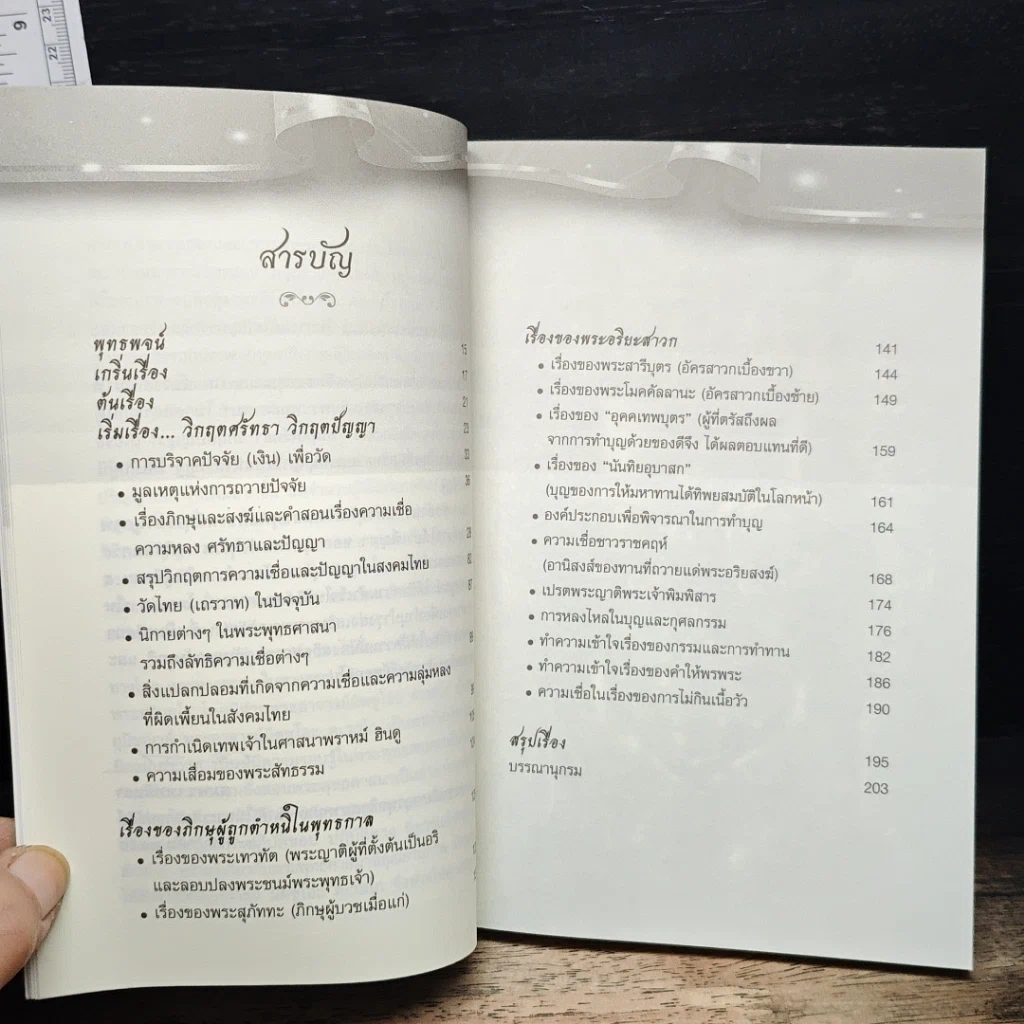 9
23
22
สารบัญ
พุทธพจน์ 15
เกริ่นเรื่อง 17
ต้นเรื่อง 21
เริ่มเรื่อง... วิกฤตศรัทธา วิกฤตปัญญา
• การบริจาคปัจจัย (เงิน) เพื่อวัด
• มูลเหตุแห่งการถวายปัจจัย
• เรื่องภิกษุและสงฆ์และคำสอนเรื่องความเชื่อ
ความหลง ศรัทธาและปัญญา
• สรุปวิกฤตการความเชื่อและปัญญาในสงคมไทย
• วัดไทย (เถรวาท) ในปัจจุบัน
• นิกายต่างๆ ในพระพุทธศาสนา
รวมถึงลัทธิความเชื่อต่างๆ
• สิ่งแปลกปลอมที่เกิดจากความเชื่อและความลุ่มหลง
ที่ผิดเพี้ยนในสังคมไทย
• การกำเนิดเทพเจ้าในศาสนาพราหม์ ฮินดู
• ความเสื่อมของพระสัทธรรม
เรื่องของภิกษุผู้ถูกตำหนิในพุทธกาล
• เรื่องของพระเทวทัต (พระญาติผู้ที่ตั้งต้นเป็นอริ
และลอบปลงพระชนม์พระพุทธเจ้า)
• เรื่องของพระสุภัททะ (ภิกษุผู้บวชเมื่อแก่)
เรื่องของพระอริยะสาวก 141
• เรื่องของพระสารีบุตร (อัครสาวกเบื้องขวา) 144
• เรื่องของพระโมคคัลลานะ (อัครสาวกเบื้องซ้าย) 149
• เรื่องของ “อุคคเทพบุตร” (ผู้ที่ตรัสถึงผล
จากการทำบุญด้วยของดีจึง ได้ผลตอบแทนที่ดี) 159
• เรื่องของ “นันทิยอุบาสก”
(บุญของการให้มหาทานได้ทิพยสมบัติในโลกหน้า) 161
• องค์ประกอบเพื่อพิจารณาในการทำบุญ 164
• ความเชื่อชาวราชคฤห์
(อานิสงส์ของทานที่ถวายแด่พระอริยสงฆ์) 168
• เปรตพระญาติพระเจ้าพิมพิสาร 174
• การหลงไหลในบุญและกุศลกรรม 176
• ทำความเข้าใจเรื่องของกรรมและการทำทาน 182
• ทำความเข้าใจเรื่องของคำให้พรพระ 186
• ความเชื่อในเรื่องของการไม่กินเนื้อวัว 190
สรุปเรื่อง 195
บรรณานุกรม 203